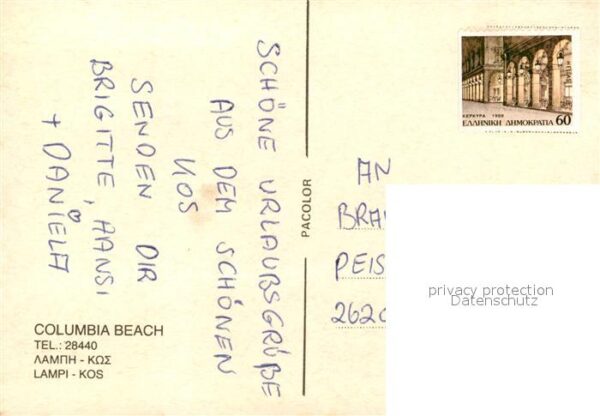 SCHÖNE URLAUBSGRÜßE
AUS DEM SCHÖNEN
KOS
SENDEN DIR
BRIGITTE, HANSI
+ DANIELA
COLUMBIA BEACH
TEL.: 28440
ΛΑΜΠΗ - ΚΩΣ
LAMPI - KOS
PACOLOR
ΚΕΡΚΥΡΑ 1988
ΕΛΛΗΝΙΚΗ ΔΗΜΟΚΡΑΤΙΑ 60
AN
BRA
PEIS
262
privacy protection
Datenschutz